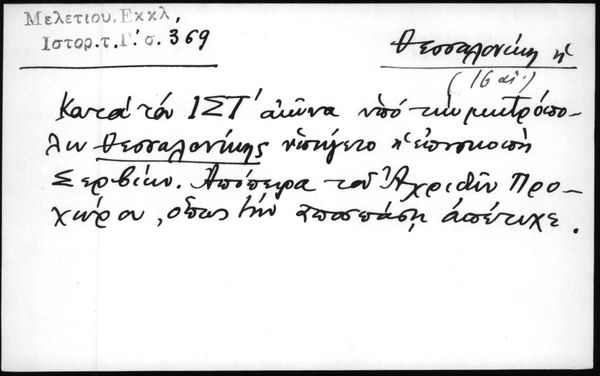 Μελετιου, Εκκλ,
Ιστορ.τ.Γ.' σ. 369
Θεσσαλονίκη ἡ
(16 αἰ.)
Κατὰ τὸν ΙΣΤ' αἰῶνα ὑπὸ τὴν μητρόπο-
λιν Θεσσαλονίκης ὑπήγετο ἡ ἐπισκοπὴ
Σερβίων. Ἀπόπειρα τοῦ Ἀχριδῶν Προ-
χώρου, ὅπως τὴν ἀποσπάσῃ ἀπέτυχε.